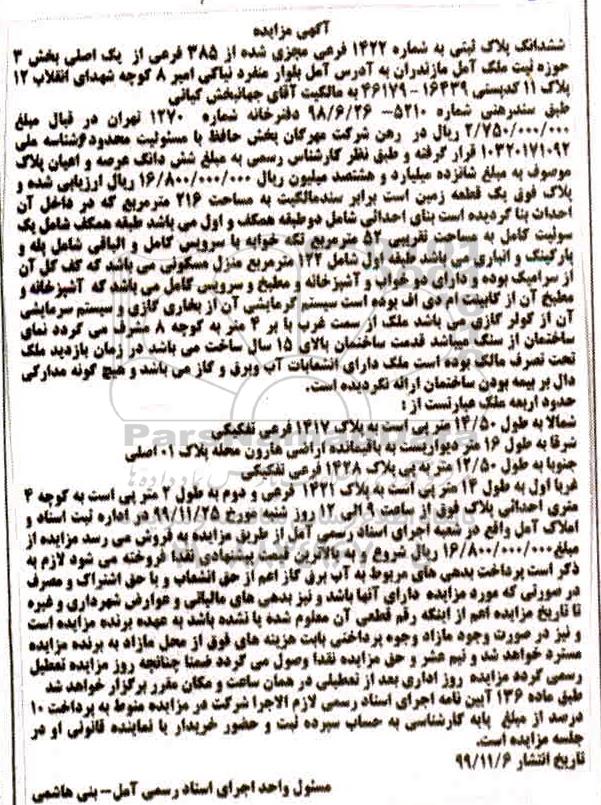 آگهی مزایده
ششدانگ پلاک ثبتی به شماره ۱۴۲۲ فرعی مجزی شده از ۳۸۵ فرعی از یک اصلی بخش ۳
حوزه ثبت ملک آمل مازندران به آدرس آمل بلوار منفرد نیاکی امیر ۸ کوچه شهدای انقلاب ۱۲
پلاک ۱۱ کدپستی ۱۶۴۳۹-۴۶۱۷۹ به مالکیت آقای جهانبخش کیانی
طبق سندرهنی شماره ۵۲۱۰-۹۸/۶/۲۶ دفترخانه شماره ۱۲۷۰ تهران در قبال مبلغ
۲/۷۵۰/۰۰۰/۰۰۰ ریال در رهن شرکت مهرگان پخش حافظ با مسئولیت محدود شناسه ملی
۱۰۳۲۰۱۷۱۰۹۲ قرار گرفته و طبق نظر کارشناس رسمی به مبلغ شش دانگ عرصه و اعیان پلاک
موصوف به مبلغ شانزده میلیارد و هشتصد میلیون ریال ۱۶/۸۰۰/۰۰۰/۰۰۰ ریال ارزیابی شده و
پلاک فوق یک قطعه زمین است برابر سندمالکیت به مساحت ۲۱۶ مترمربع که در داخل آن
احداث بنا گردیده است بنای احداثی شامل دوطبقه همکف و اول می باشد طبقه همکف شامل یک
سوئیت کامل به مساحت تقریبی ۵۲ مترمربع تکه خوابه با سرویس کامل و الباقی شامل پله و
پارکینگ و انباری می باشد طبقه اول شامل ۱۲۲ مترمربع منزل مسکونی می باشد که کف کل آن
از سرامیک بوده و دارای دوخواب و آشپزخانه و مطبخ و سرویس کامل می باشد که آشپزخانه و
مطبخ آن از کابینت ام دی اف بوده است سیستم گرمایشی آن از بخاری گازی و سیستم سرمایشی
آن از کولر گازی می باشد ملک از سمت غرب با بر ۴ متر به کوچه ۸ مشرف می گردد نمای
ساختمان از سنگ میباشد قدمت ساختمان بالای ۱۵ سال ساخت می باشد در زمان بازدید ملک
تحت تصرف مالک بوده است ملک دارای انشعابات آب وبرق و گاز می باشد و هیچ گونه مدارکی
دال بر بیمه بودن ساختمان ارائه نگردیده است.
حدود اربعه ملک عبارتست از :
شمالا به طول ۱۴/۵۰ متر پی است به پلاک ۱۴۱۷ فرعی تفکیکی
شرقا به طول ۱۶ متر دیواریست به باقیمانده اراضی هارون محله پلاک ۰۱ اصلی
جنوبا به طول ۱۲/۵۰ متر به پی پلاک ۱۴۲۸ فرعی تفکیکی
غربا اول به طول ۱۴ متر پی است به پلاک ۱۴۲۱ فرعی و دوم به طول ۲ متر پی است به کوچه ۴
متری احداثی پلاک فوق از ساعت ۹ الی ۱۲ روز شنبه مورخ ۹۹/۱۱/۲۵ در اداره ثبت اسناد و
املاک آمل واقع در شعبه اجرای اسناد رسمی آمل از طریق مزایده به فروش می رسد مزایده از
مبلغ ۱۶/۸۰۰/۰۰۰/۰۰۰ ریال شروع و به بالاترین قیمت پیشنهادی نقدا فروخته می شود لازم به
ذکر است پرداخت بدهی های مربوط به آب برق گاز اعم از حق انشعاب و یا حق اشتراک و مصرف
در صورتی که مورد مزایده دارای آنها باشد و نیز بدهی های مالیاتی و عوارض شهرداری و غیره
تا تاریخ مزایده اعم از اینکه رقم قطعی آن معلوم شده یا نشده باشد به عهده برنده مزایده است
و نیز در صورت وجود مازاد وجوه پرداختی بابت هزینه های فوق از محل مازاد به برنده مزایده
مسترد خواهد شد و نیم عشر و حق مزایده نقدا وصول می گردد ضمنا چنانچه روز مزایده تعطیل
رسمی گردد مزایده روز اداری بعد از تعطیلی در همان ساعت و مکان مقرر برگزار خواهد شد
طبق ماده ۱۳۶ آیین نامه اجرای اسناد رسمی لازم الاجرا شرکت در مزایده منوط به پرداخت ۱۰
درصد از مبلغ پایه کارشناسی به حساب سپرده ثبت و حضور خریدار یا نماینده قانونی او در
جلسه مزایده است.
تاریخ انتشار ۹۹/۱۱/۶
مسئول واحد اجرای اسناد رسمی آمل- بنی هاشمی